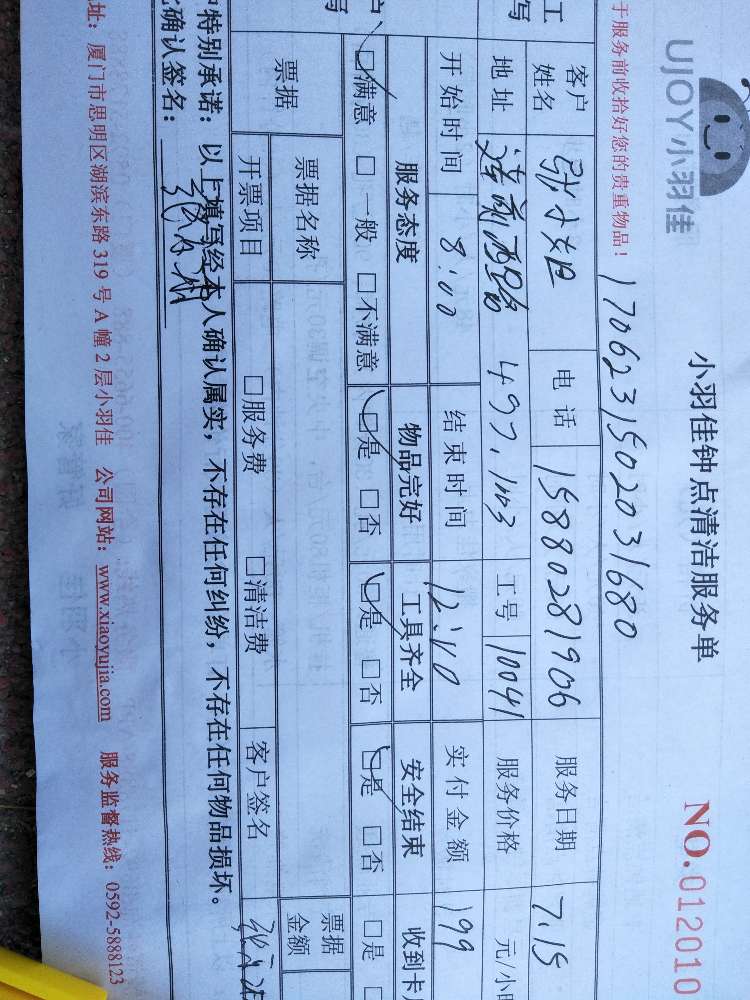 UJOY小羽佳
小羽佳钟点清洁服务单
NO.012010
于服务前收拾好您的贵重物品！
1706231502031680
客户姓名 张小姐 电话 15880281906 服务日期 7.15
地址 莲前西路 497.1003 工号 10041 服务价格 元/小
开始时间 8:00 结束时间 12:00 实付金额 199
服务态度 物品完好 工具齐全 安全结束 收到卡
□满意 □一般 □不满意 □是 □否 □是 □否 □是 □否 □是
票据 票据名称 票据金额
开票项目 □服务费 □清洁费 客户签名
特别承诺：以上填写经本人确认属实，不存在任何纠纷，不存在任何物品损坏。
确认签名：
址：厦门市思明区湖滨东路319号A幢2层小羽佳 公司网站：www.xiaoyujia.com 服务监督热线：0592-5888123